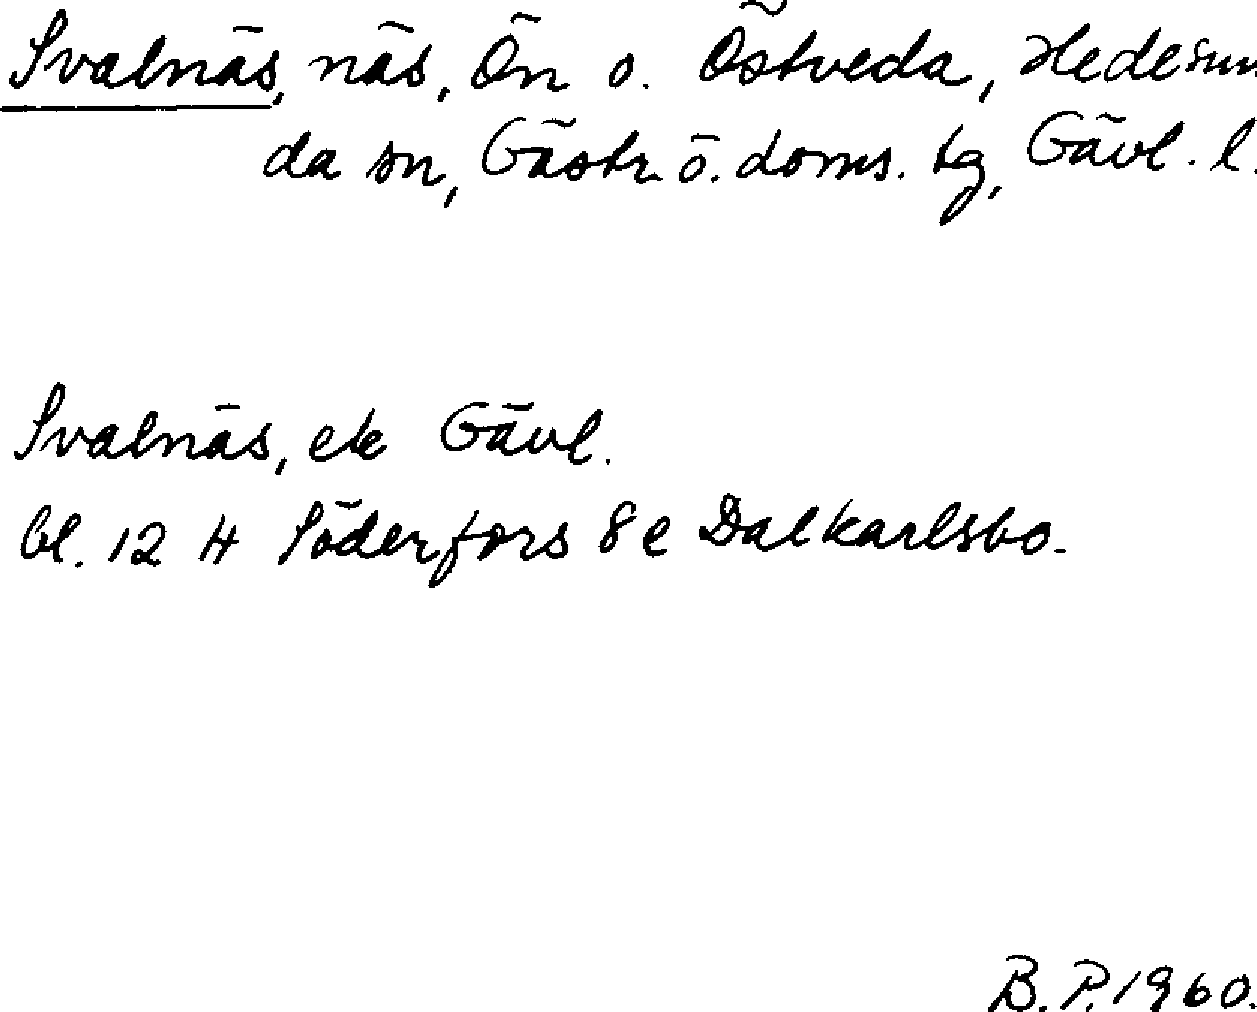 Svalnäs, näs, Ön o. Östveda, Hedesun
da sn, Gästr. ö. doms. tg, Gävl. l.
Svalnäs, ek Gävl.
bl. 12 H Söderfors 8 e Dalkarlsbo.
B. P. 1960.